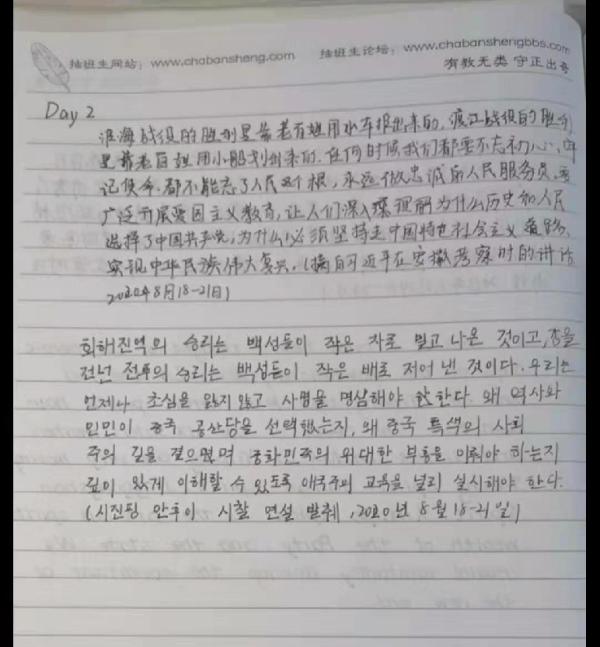 插班生网站：www.chabansheng.com 插班生论坛：www.chabanshengbbs.com
有教无类 守正出奇
Day 2
淮海战役的胜利是靠老百姓用小车推出来的，渡江战役的胜利
是靠老百姓用小船划出来的。任何时候我们都要不忘初心、牢
记使命，都不能忘了人民这个根，永远做忠诚的人民服务员，要
广泛开展爱国主义教育，让人们深入理解为什么历史和人民
选择了中国共产党，为什么必须坚持走中国特色社会主义道路、
实现中华民族伟大复兴。（摘自习近平在安徽考察时的讲话
2020年8月18-21日）
회해전역의 승리는 백성들이 작은 차로 밀고 나온 것이고, 강을
건넌 전투의 승리는 백성들이 작은 배로 저어 낸 것이다. 우리는
언제나 초심을 잃지 않고 사명을 명심해야 한다. 왜 역사와
인민이 중국 공산당을 선택했는지, 왜 중국 특색의 사회
주의 길을 걸으며 중화민족의 위대한 부흥을 이뤄야 하는지
깊이 있게 이해할 수 있도록 애국주의 교육을 널리 실시해야 한다.
(시진핑 안후이 시찰 연설 발췌, 2020년 8월 18-21일)